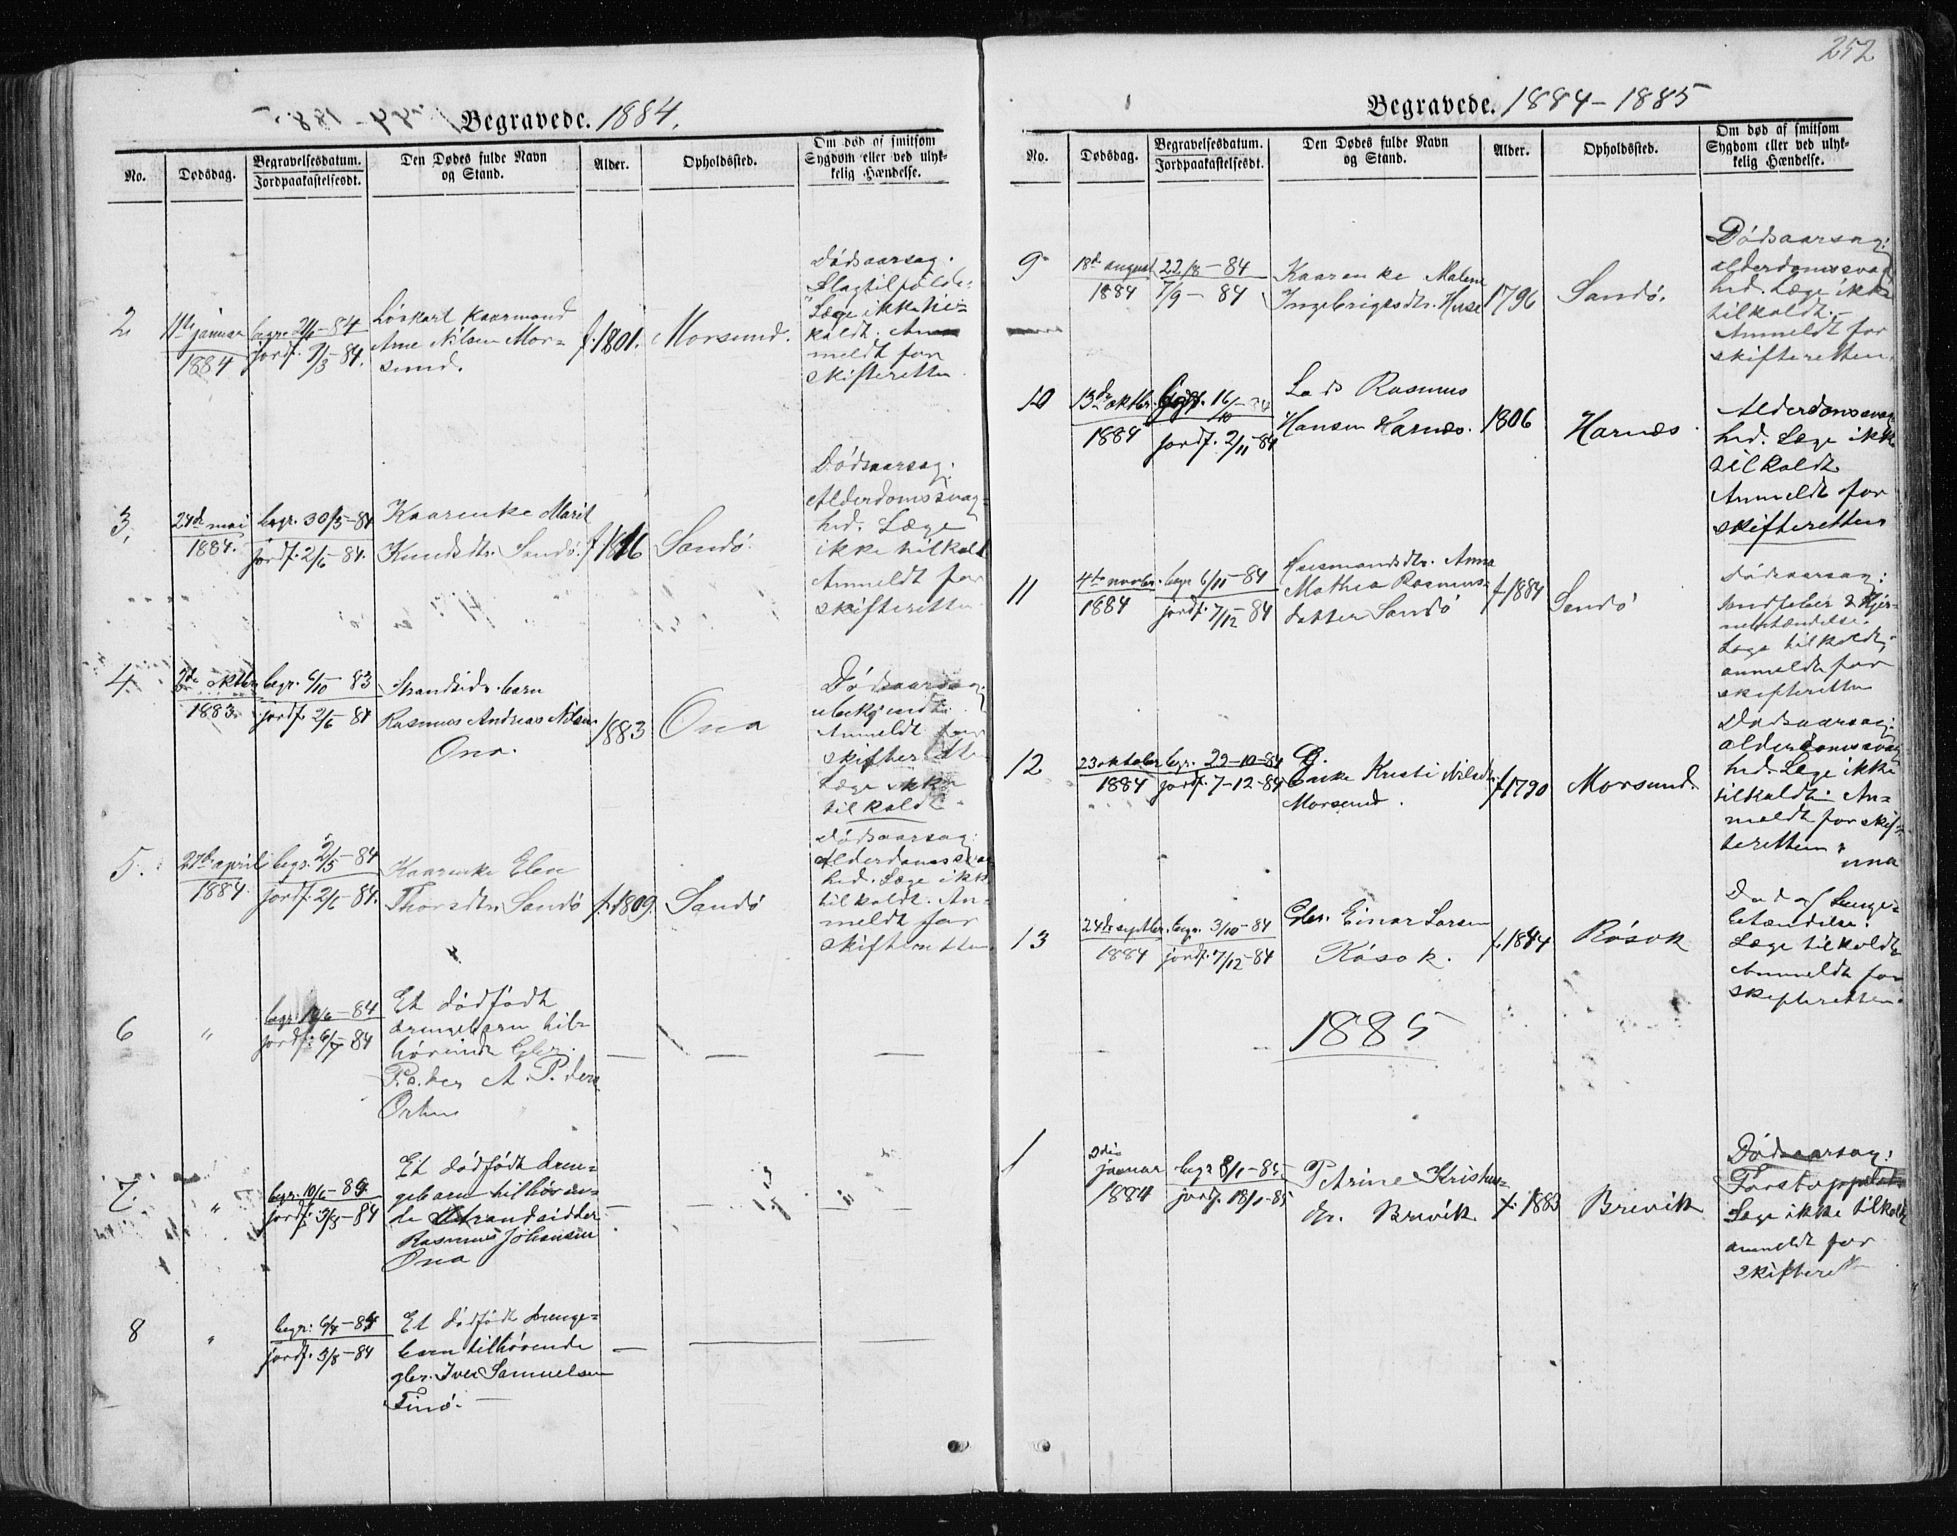 Begravede. 1884.
No.
Dødsdag.
Begravelsesdatum.
Jordpaakastelsesdt.
Den Dødes fulde Navn
og Stand.
Alder.
Opholdssted.
Om død af smitsom
Sygdom eller ved ulyk-
kelig Hændelse.
2
11te januar
1884
jordf. 9/3-84.
Løskarl kaarmand
Arne Nilsen Mor-
sund.
f. 1801.
Morsund.
Dødsaarsag.
Slagtilfælde.
Læge ikke til-
kaldt. An-
meldt for
skifteretten.
3.
24de mai
1884.
begr. 30/5-84
jordf. 2/6-84.
Kaarenke Marit
Knudsdtr. Sandö.
Sandö.
Dödsaarsag.
Alderdomssvag-
hed. Læge
ikke tilkaldt
Anmeldt for
skifteretten.
4.
oktbr
1883.
begr. 6/10-83
jordf. 2/6-84
Strandsids. barn
Rasmus Andreas Nilsen
Ona.
1883
Ona
Dödsaarsag
ubekjendt.
Anmeldt for
skifteretten
Læge ikke
tilkaldt
5.
27de april
1884.
begr. 2/5-84
jordf. 2/6-84.
Kaarenke Elen
Thorsdtr. Sandö
f. 1809.
Sandö
Dødsaarsag.
Alderdomssvag
hed. Læge ikke
tilkaldt. An-
meldt for
skifteretten.
6
"
jordf. 6/7 84
Et dödfödt
drengebarn til-
hörende Gbr.
A. Peders
—
—
—
7.
"
begr. 10/6-84
jordf. 3/8-84
Et dödfödt dren-
gebarn tilhören-
de Strandsidder
Rasmus Johansen
Ona
—
—
8
"
begr. 6/7-84
jordf. 3/8-84
Et dödfödt drenge-
barn tilhörende
gbr. Iver Samuelsen
Finö.
—
252
Begravede. 1884-1885
No.
Dødsdag.
Begravelsesdatum.
Jordpaakastelsesdt.
Den Dødes fulde Navn
og Stand.
Alder.
Opholdssted.
Om død af smitsom
Sygdom eller ved ulyk-
kelig Hændelse.
9
18de august
1884
22/8-84
7/9-84
Kaarenke Malene
Ingebrigtsdtr. Huse
1796
Sandö.
Dödsaarsag:
alderdomssvag
hed. Læge ikke
tilkaldt.
Anmeldt for
skifteretten.
10
13de oktbr.
1884
begr. 16/10-84
jordf. 2/11-84
Lods Rasmus
Hansen Harnæs.
1806
Harnæs.
Alderdomssvag
hed. Læge ikke
tilkaldt
Anmeldt for
skifteretten
11
4de novbr.
1884
begr. 6/11-84
jordf. 7/12-84
Husmandsdtr. Anna
Mathea Rasmus-
datter Sandö
f 1884
Sandö
Dödsaarsag:
Hjer-
nebetændelse.
Læge tilkaldt
anmeldt for
skifteretten
12
23 oktober
1884
begr. 29-10-84
jordf. 7-12-84
G.
Enke Kristi Nilsdtr.
Morsund.
f 1790
Morsund.
Dødsaarsag:
alderdomssvag
hed. Læge ikke
tilkaldt. An-
meldt for skif-
teretten
13
24de septbr.
1884
begr. 3/10-84
jordf. 7/12-84
Gbr. Einar Larsen
Rösok.
f. 1844
Rösok
Død af Lunge-
betændelse.
Læge tilkaldt
Anmeldt for
skifteretten.
1885
1
januar
1884
begr 8/1-85
jordf. 18/1-85
Petrine Kristens-
dtr. Brevik
f. 1883
Brevik
Dødsaarsag:
Læge ikke tilkaldt
anmeldt for
skifterett